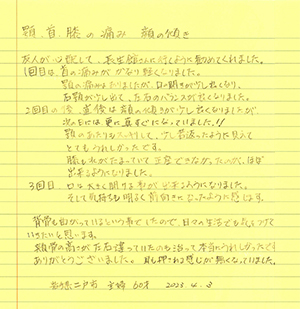 顎、首、膝の痛み 顔の傾き
友人が心配して、長生館さんに行くように勧めてくれました。
1回目は、首の痛みがかなり軽くなりました。
顎の痛みもありましたが、口の開きが少し軽くなり、
右顎が少し出て、左右のバランスが良くなりました。
2回目の後、直後は顔の傾きが少し良くなりましたが
次の日には更に真すぐになっていました!!
顎のあたりもスッキリして、少し若返ったように見えて
とてもうれしかったです。
膝も水がたまっていて正座できなかったのが、ほぼ
出来るようになりました。
3回目 口は大きく開ける事が出来るようになりました。
そして気持ちも明るく前向きになったように感じます。
背骨も曲がっているという事でしたので、日々の生活でも気をつけて
いきたいと思います。
頬骨の高さが左右違っていたのも治って本当にうれしかったです
ありがとうございました。耳も押される感じが無くなっていました。
二戸市 女性 60才 2023. 4. 8